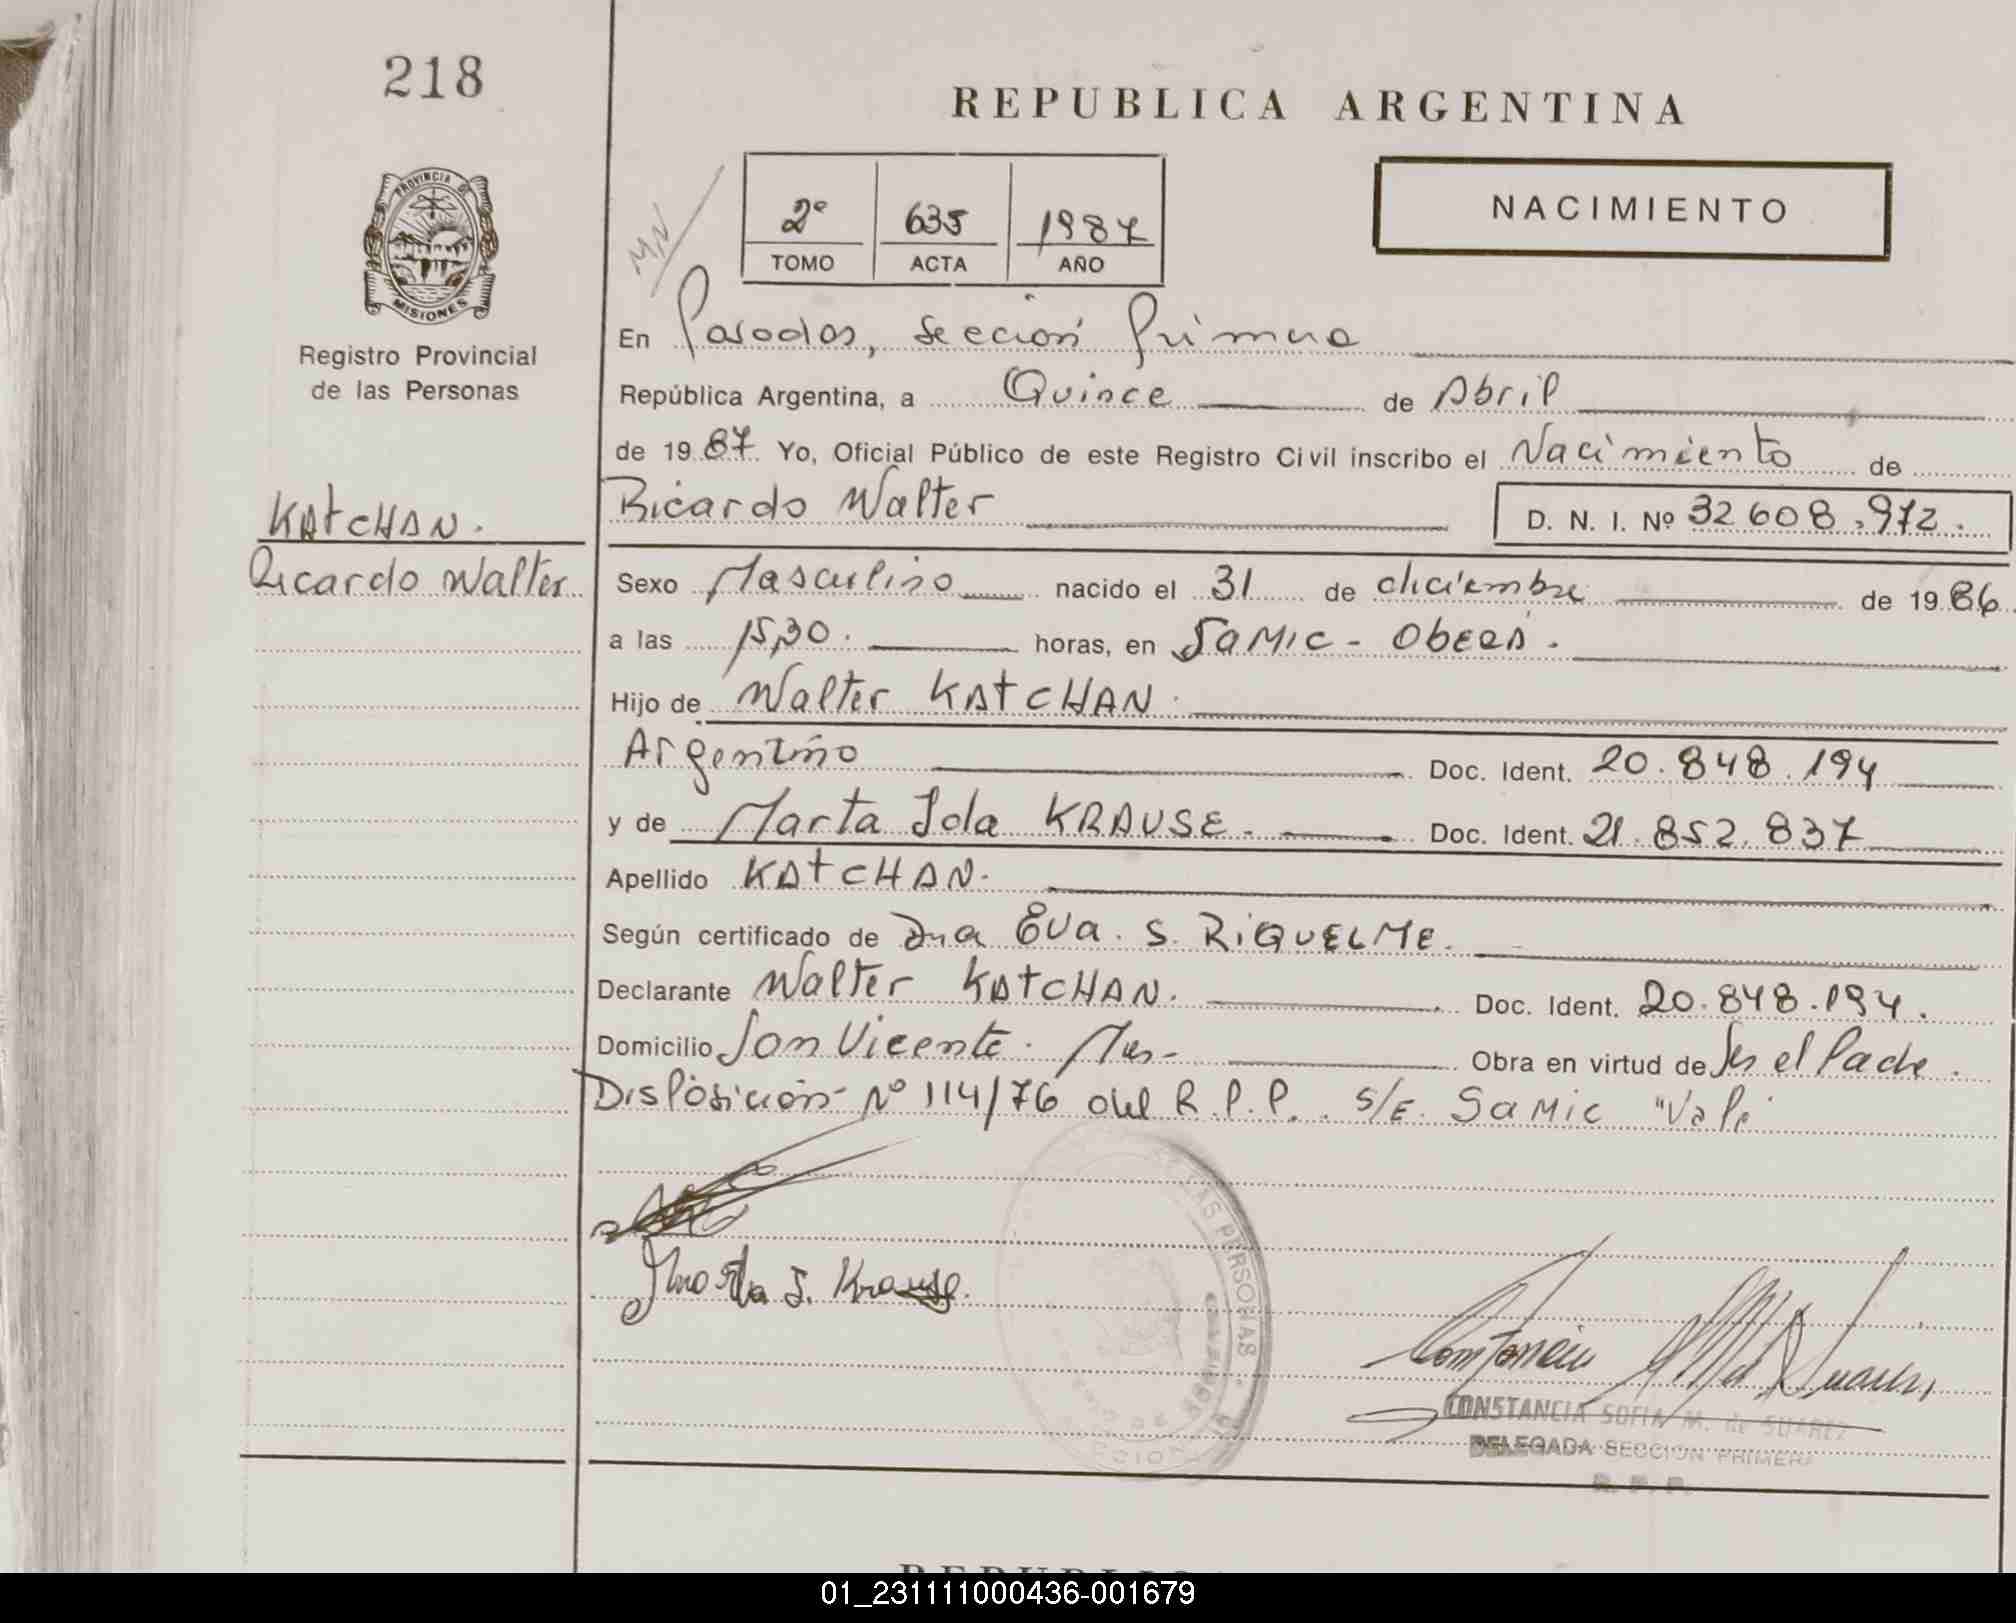 218
REPUBLICA ARGENTINA
PROVINCIA DE
MISIONES
Registro Provincial
de las Personas
MN
2º 635 1987
TOMO ACTA AÑO
NACIMIENTO
En Posadas, Sección Primera
República Argentina, a Quince de Abril
de 1987 Yo, Oficial Público de este Registro Civil inscribo el Nacimiento de
KATCHAN.
Ricardo Walter
Ricardo Walter D. N. I. Nº 32608.972.
Sexo Masculino nacido el 31 de diciembre de 1986
a las 15,30. horas, en SaMic - Oberá.
Hijo de Walter KATCHAN.
Argentino Doc. Ident. 20.848.194
y de Marta Ida KRAUSE. Doc. Ident. 21.852.837
Apellido KATCHAN.
Según certificado de Dra Eva. S. RiQUELME.
Declarante Walter KATCHAN. Doc. Ident. 20.848.194.
Domicilio San Vicente. Mnes- Obra en virtud de Ser el Padre.
Disposición Nº 114/76 del R.P.P. S/E. SaMic "Vale"
Marta I. Krause.
LAS PERSONAS
CONSTANCIA SOFIA M. de SUAREZ
DELEGADA SECCION PRIMERA
R. P. P.
01_231111000436-001679